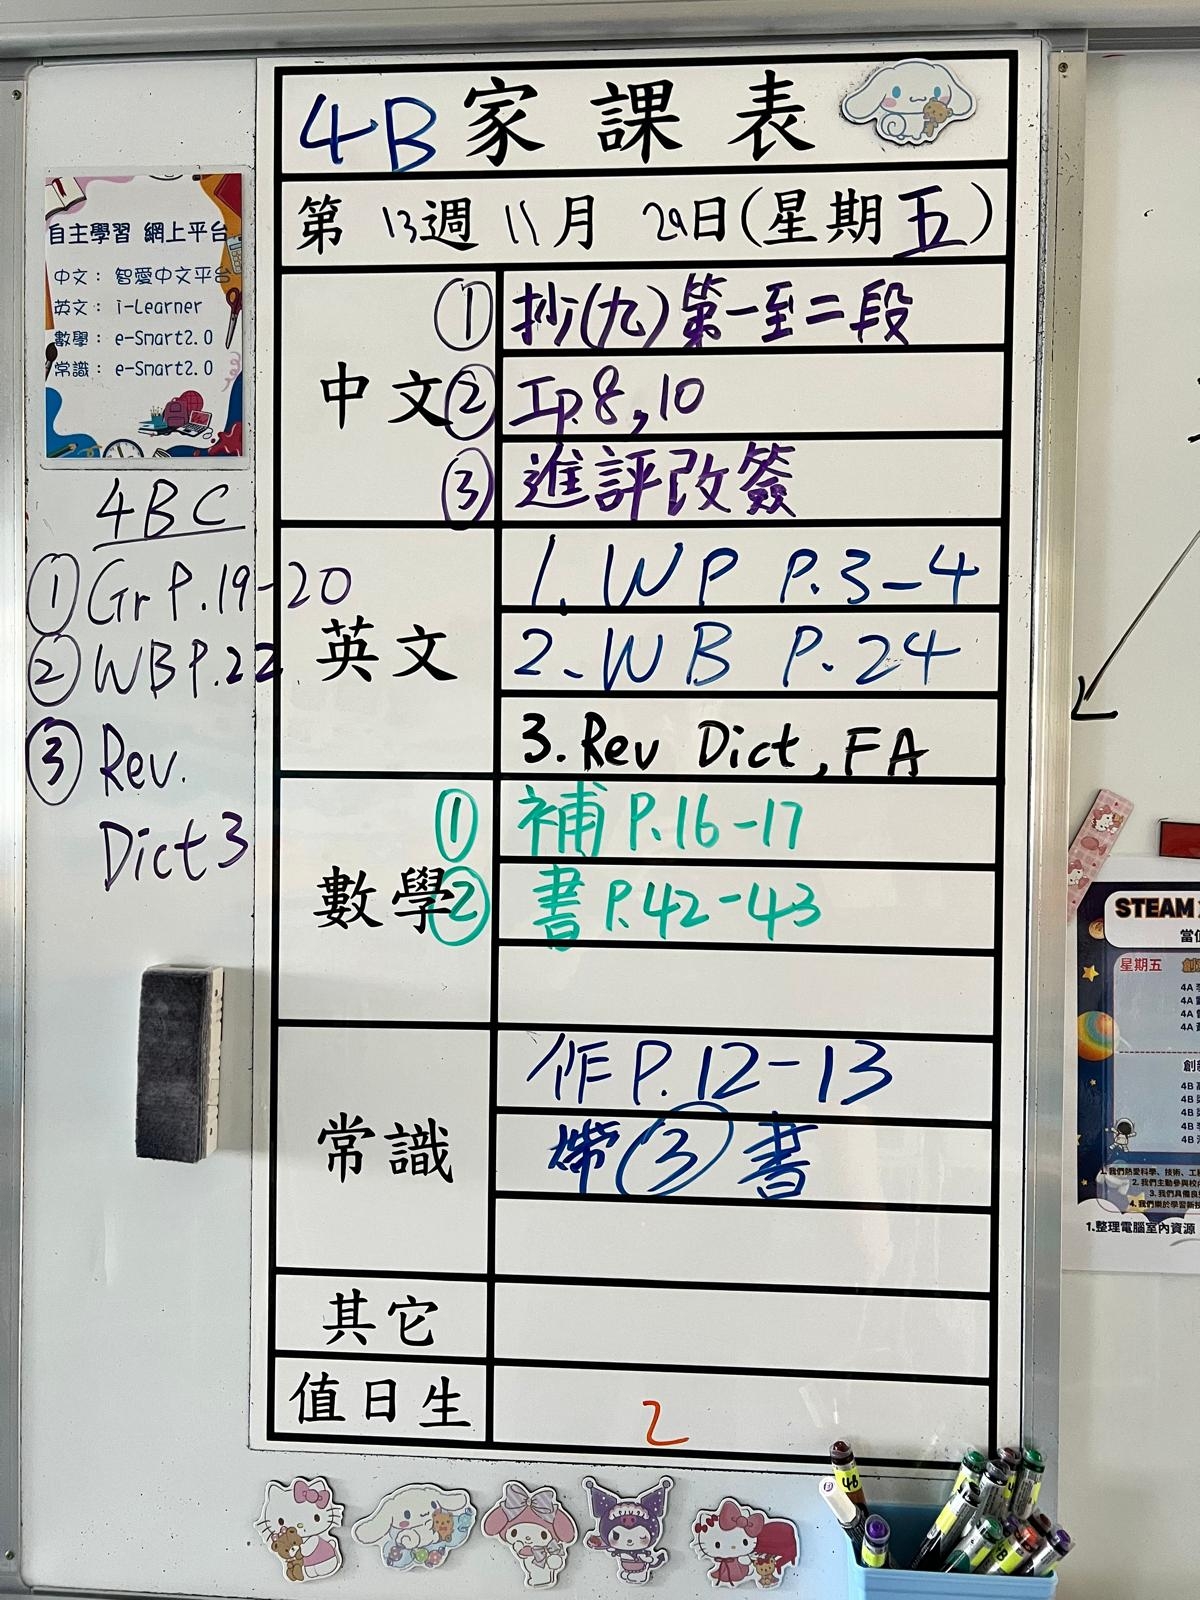 4B 家課表
第 13 週 11 月 29 日(星期五)
中文
① 抄(九)第一至二段
② 工p.8,10
③ 進評改簽
英文
1. WP P.3-4
2. WB P.24
3. Rev Dict, FA
數學
① 補 P.16-17
② 書 P.42-43
常識
作 P.12-13
帶③書
其它
值日生
2
自主學習 網上平台
中文: 智愛中文平台
英文: i-Learner
數學: e-Smart2.0
常識: e-Smart2.0
4BC
① Gr P.19-20
② WB P.22
③ Rev.
Dict 3
STEAM
星期五
4A
4A
4A
4A
4B
4B
4B
4B
4B
1. 我們熱愛科學、技術、工
2. 我們主動參與校
3. 我們具備良
4. 我們樂於學習新
1.整理電腦室內資源
4B